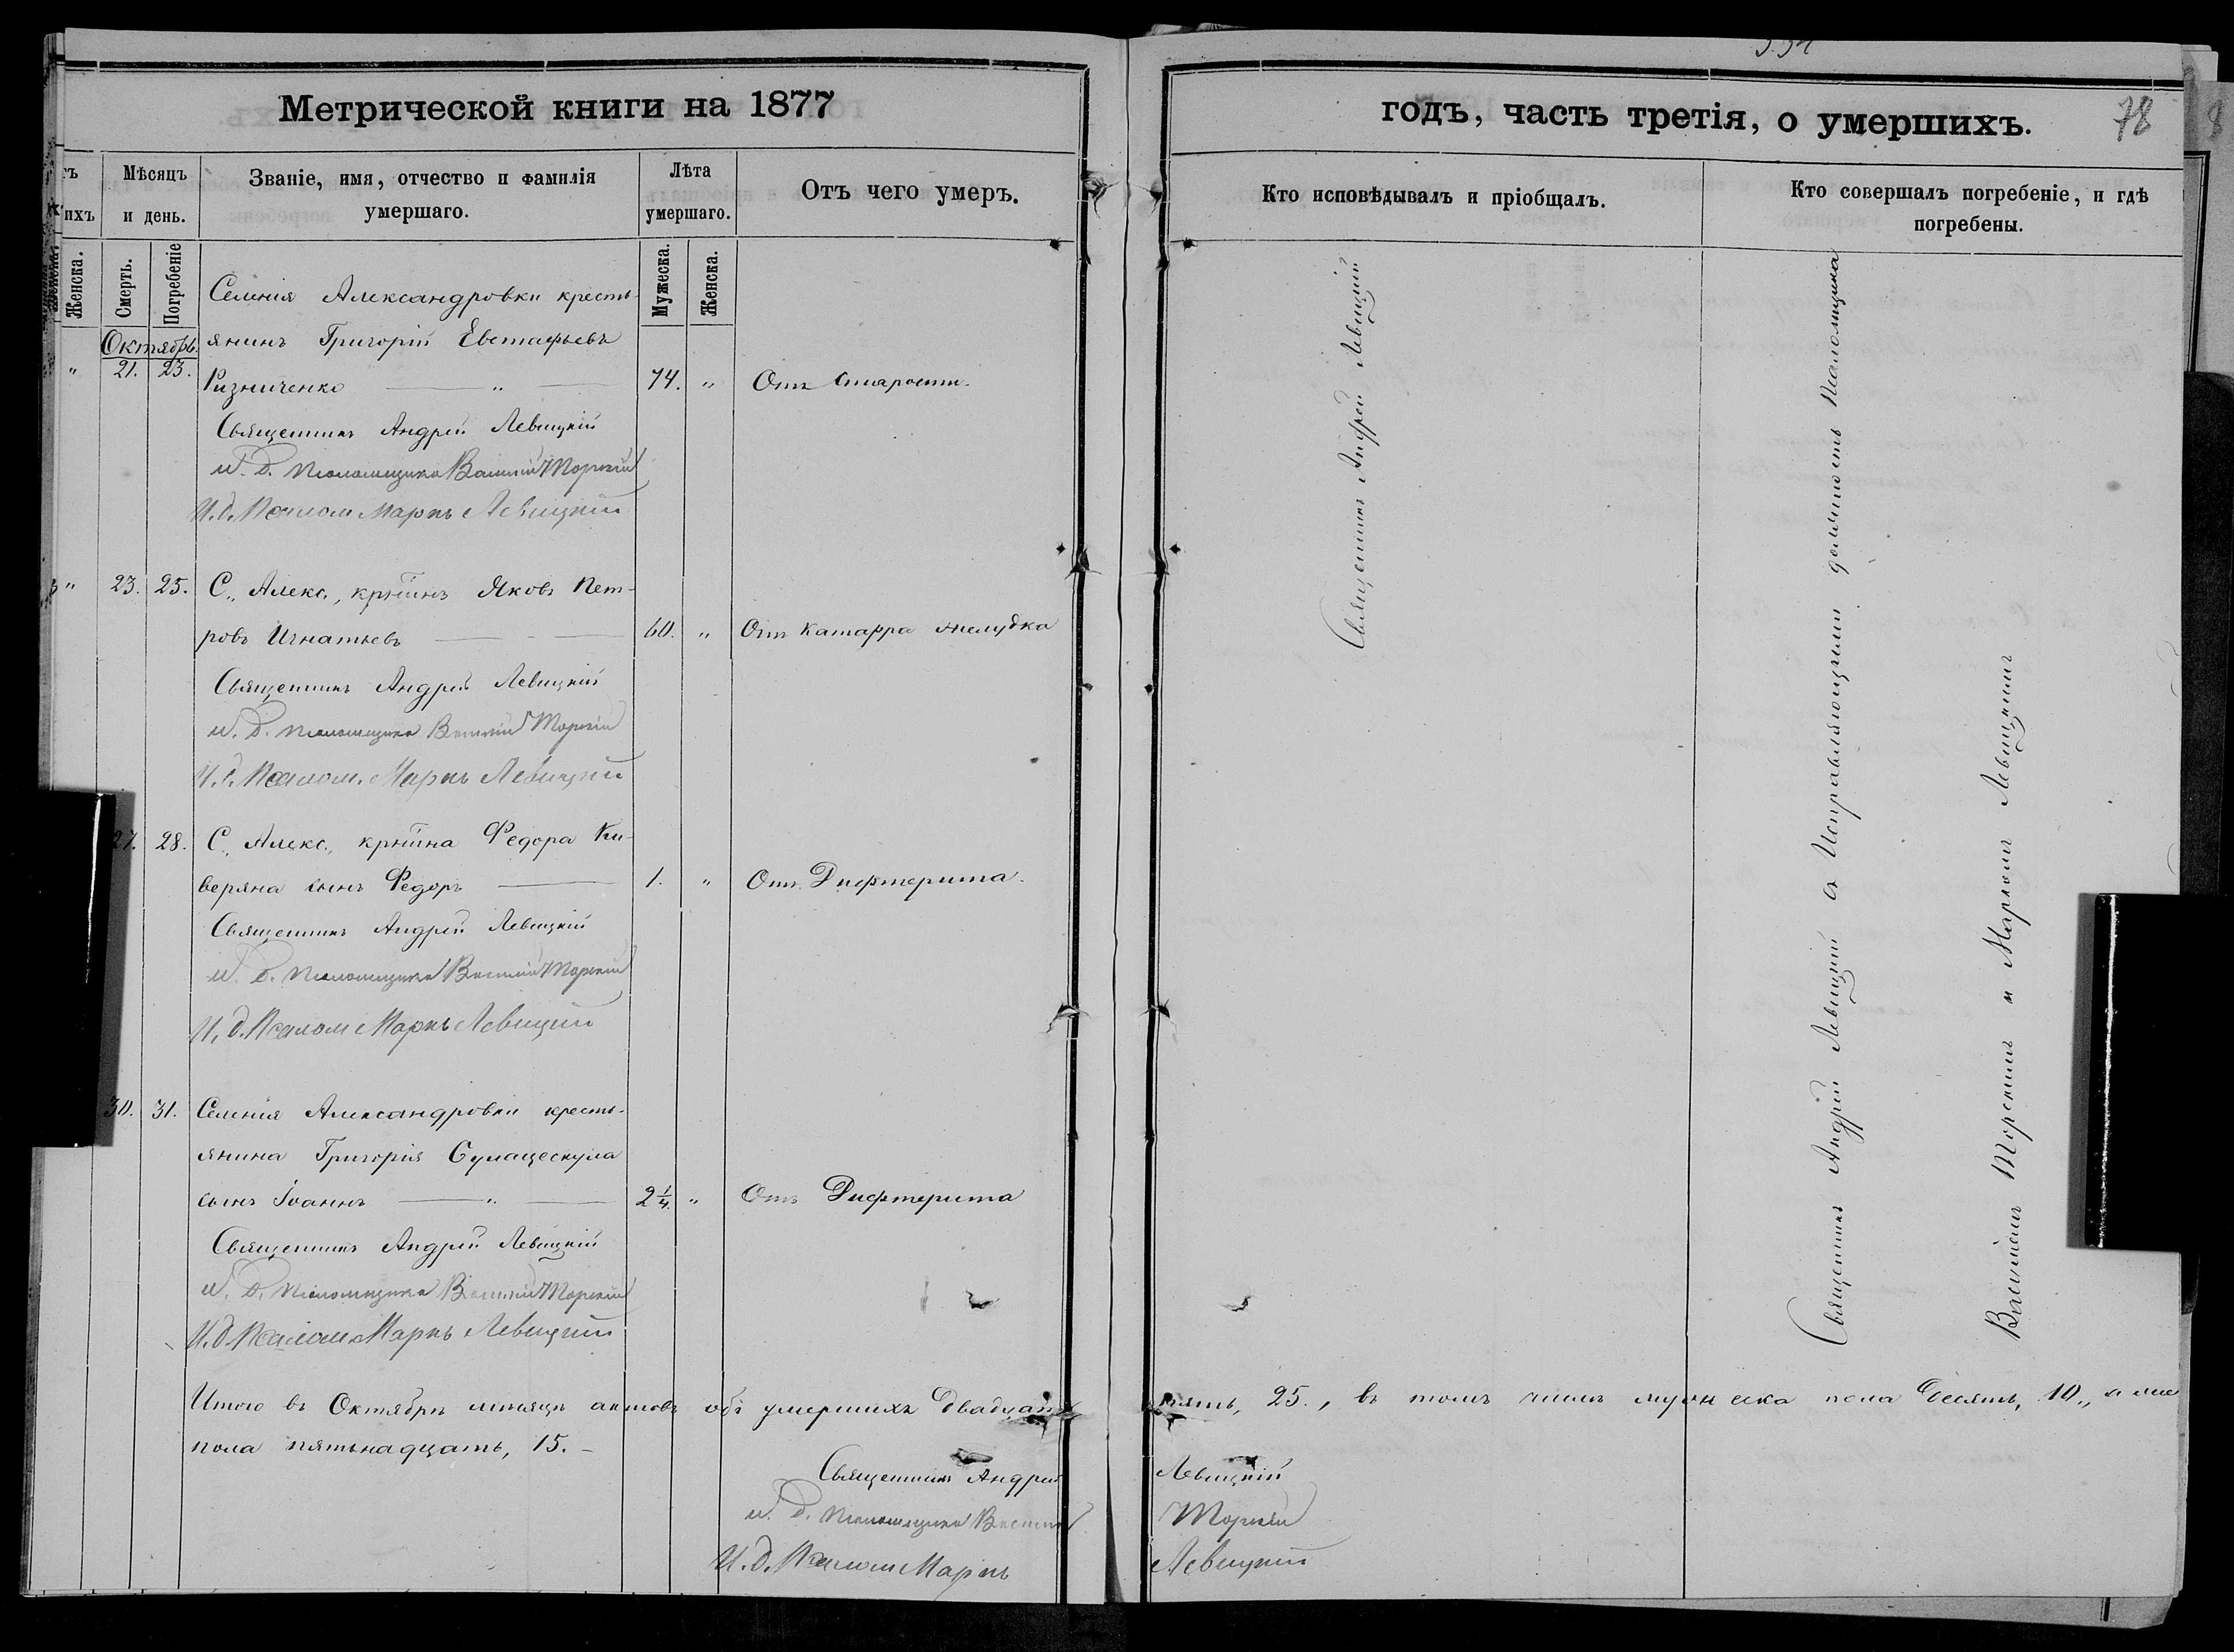 Метрической книги на 1877
годъ, часть третія, о умершихъ.
78
Мѣсяцъ и день.
Званіе, имя, отчество и фамилія умершаго.
Лѣта умершаго.
Отъ чего умеръ.
Кто исповѣдывалъ и пріобщалъ.
Кто совершалъ погребеніе, и гдѣ погребены.
Женска.
Смерть.
Погребеніе
Мужеска.
Женска.
Октябрь.
Селенія Александровки кресть-
янинъ Григорій Евстафьевъ
21. 23. Ризниченко — „ — 74. „ Отъ старости.
Священникъ Андрей Левицкій
И. д. псаломщика Василій Торскій
И. д. Псалом Маркъ Левицкій
„ 23. 25. С. Алекс., крѣтинъ Яковъ Пет-
ровъ Игнатьевъ — 60. „ Отъ катарра желудка
Священникъ Андрей Левицкій
И. д. псаломщика Василій Торскій
И. д. Псалом. Маркъ Левицкій
27. 28. С. Алекс., крѣтина Федора Ки-
веряна сынъ Федоръ — 1. „ Отъ Дифтерита.
Священникъ Андрей Левицкій
И. д. псаломщика Василій Торскій
И. д. Псалом Маркъ Левицкій
30. 31. Селенія Александровки кресть-
янина Григорія
сынъ Іоаннъ — „ — 2 1/4. „ Отъ Дифтерита
Священникъ Андрей Левицкій
И. д. псаломщика Василій Торскій
И. д. Псалом Маркъ Левицкій
Итого въ Октябрѣ мѣсяцѣ актовъ объ умершихъ двадцать пять, 25., въ томъ числѣ мужеска пола десять, 10., и
пола пятьнадцать, 15. –
Священникъ Андрей Левицкій
И. д. псаломщика Василій Торскій
И. д. Псалом Маркъ Левицкій
Священникъ Андрей Левицкій
Священникъ Андрей Левицкій съ Исправляющими должность Псаломщика
Василіемъ Торскимъ и Маркомъ Левицкимъ